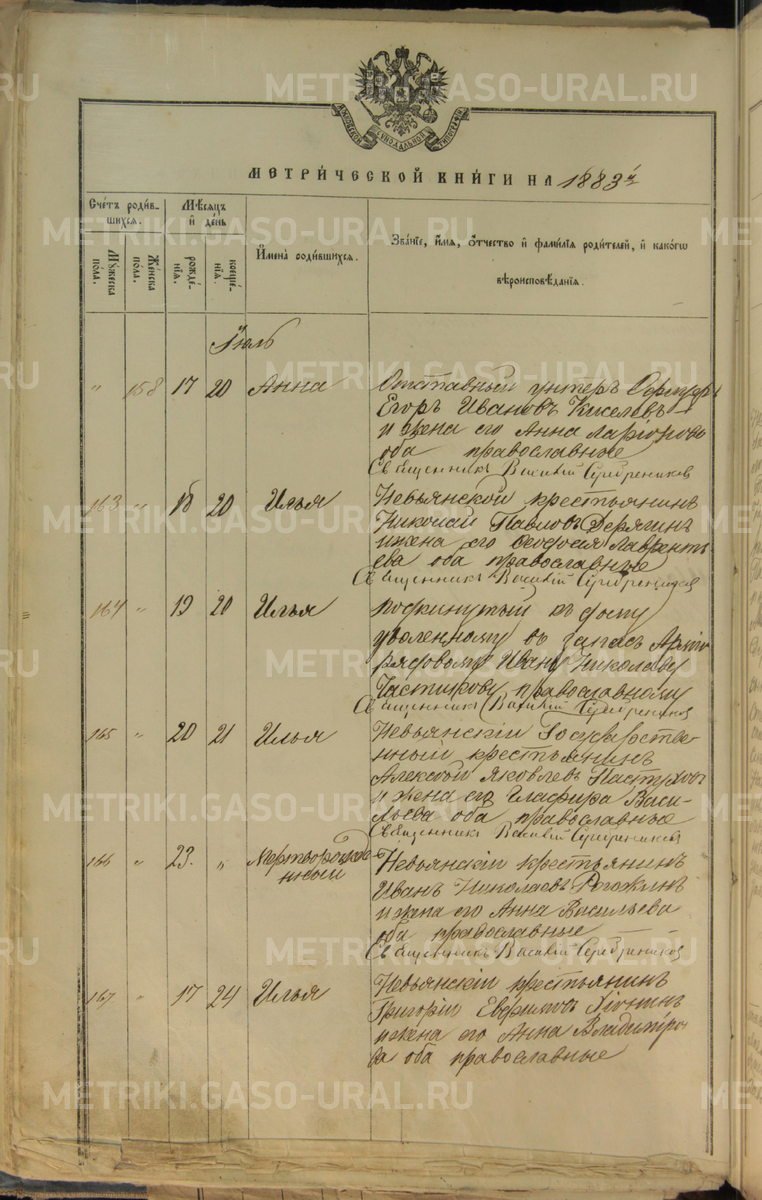 METRIKI.GASO-URAL.RU
МЕТРИ́ЧЕСКОЙ КНИ́ГИ НА 1883 г.
Сче́тъ роди́в-
шихся.
Мꙋжеска
по́ла.
Же́нска
по́ла.
Мѣ́сяцъ
и҆ де́нь
рожде́-
нїѧ.
креще́-
нїѧ.
И҆мена̀ роди́вшихся.
Зва́нїе, и҆́мѧ, ѻ҆́тчество и҆ фами́лїѧ роди́телей, и҆ како́гѡ
вѣроисповѣ́данїѧ.
Іюль
" 158 17 20 Анна
Отставный унтеръ Офицеръ
Егоръ Ивановъ Киселевъ
и жена его Анна Ларіонова
оба православные
Священникъ Василій Серебрениковъ
163 " 18 20 Илья
Невьянской крестьянинъ
Николай Павловъ Дерягинъ
и жена его Феодосія Лавренть
ева оба православные
Священникъ Василій Серебрениковъ
164 " 19 20 Илья
Подкинутый къ дому
уволенному въ запасъ Арміи
рядовому Ивану Николаеву
Частикову православному
Священникъ Василій Серебрениковъ
165 " 20 21 Илья
Невьянскій Государстве-
нный крестьянинъ
Алексѣй Яковлевъ Пастуховъ
и жена его Глафира Васи-
льева оба православные
Священникъ Василій Серебрениковъ
166 " 23. " Мертворожде-
нный
Невьянскій крестьянинъ
Иванъ Николаевъ Рогожинъ
и жена его Анна Васильева
оба православные
Священникъ Василій Серебрениковъ
167 " 17 24 Илья
Невьянскій крестьянинъ
Григорій Евфимовъ
и жена его Анна Владиміро
ва оба православные